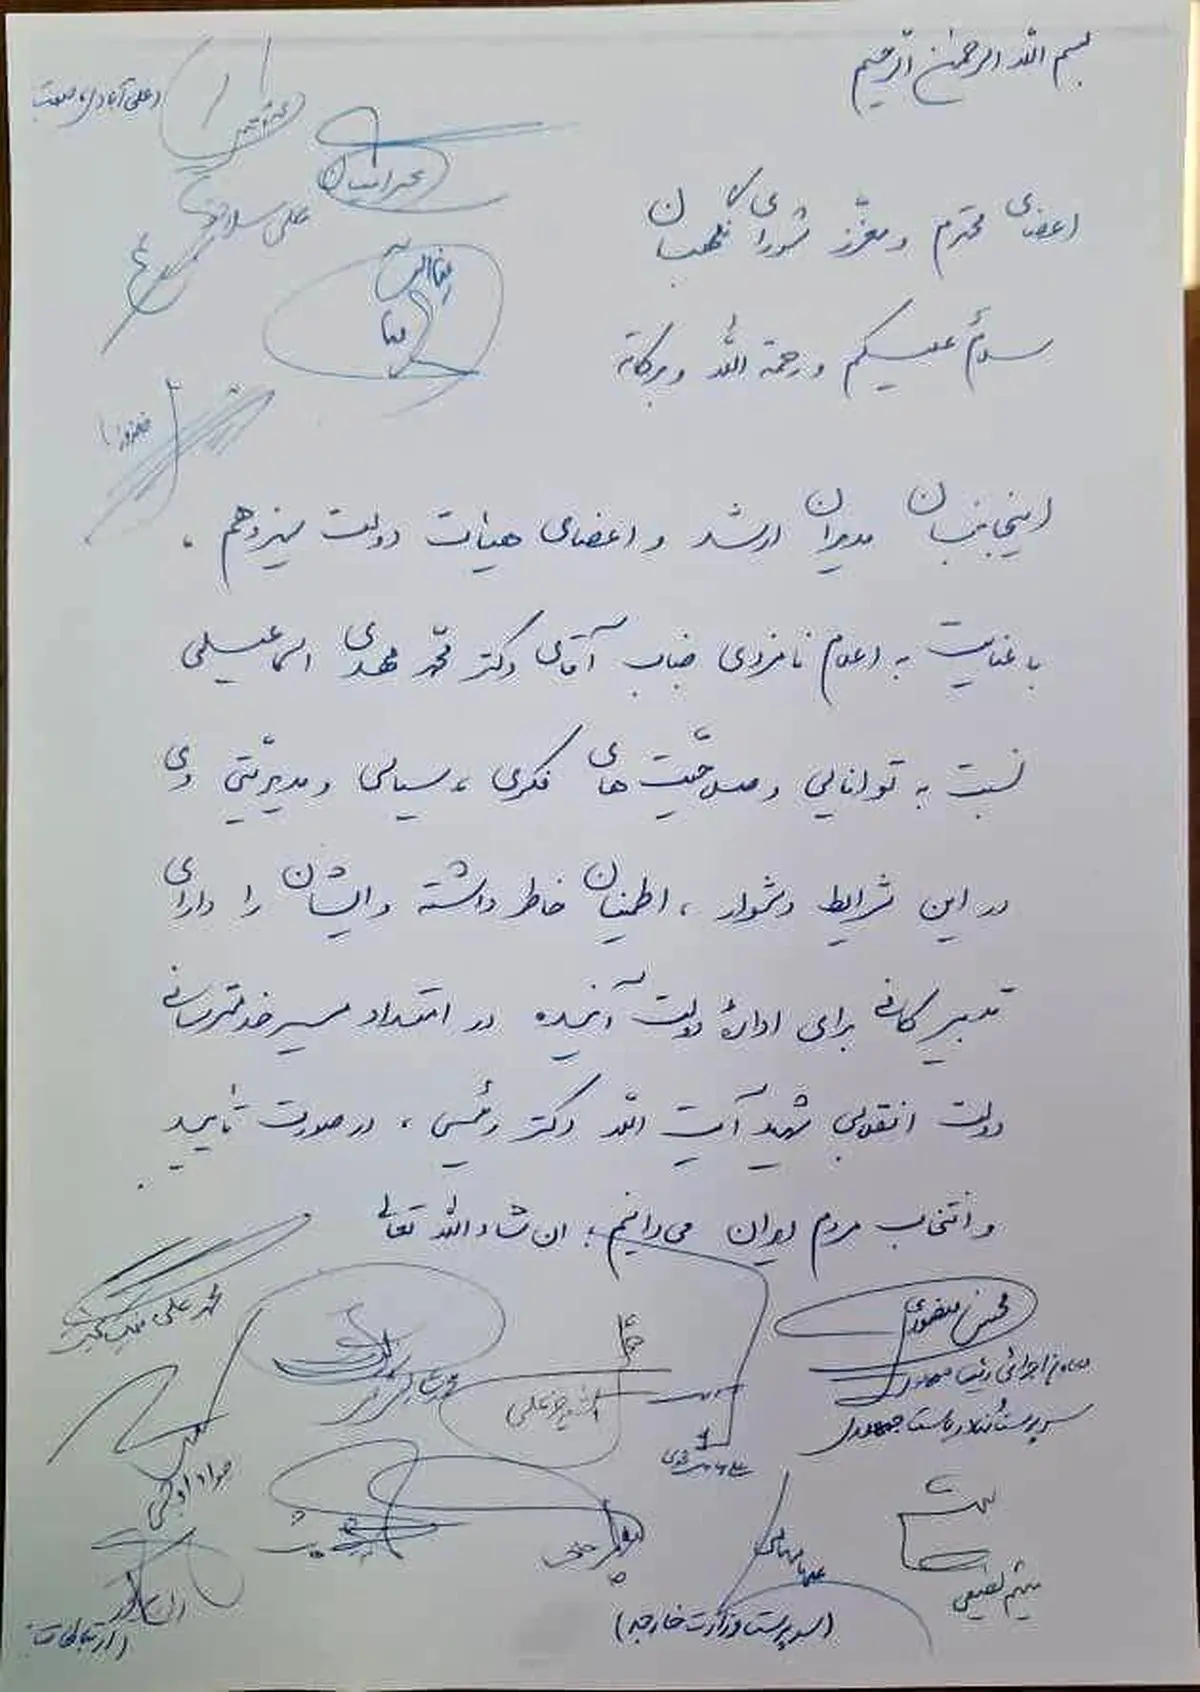 بسم الله الرحمن الرحیم
اعضای محترم و معزز شورای نگهبان
سلامٌ علیکم و رحمة الله و برکاته
اینجانبان مدیران ارشد و اعضای هیأت دولت سیزدهم ،
با عنایت به اعلام نامزدی جناب آقای دکتر محمد مهدی اسماعیلی
نسبت به توانایی و صلاحیت های فکری ، سیاسی و مدیریتی وی
در این شرایط دشوار ، اطمینان خاطر داشته و ایشان را دارای
تدبیر کافی برای ادارهٔ دولت آینده در امتداد مسیر خدمترسانی
دولت انقلابی شهید آیت الله دکتر رئیسی ، در صورت تأیید
و انتخاب مردم ایران می‌دانیم ؛ ان شاء الله تعالی
محسن منصوری
معاون اجرائی رئیس جمهوری
سرپرست نهاد ریاست جمهوری
میثم لطیفی
(سرپرست وزارت خارجه)
جواد اوجی
(ارتباطات)
علی سلاجقه